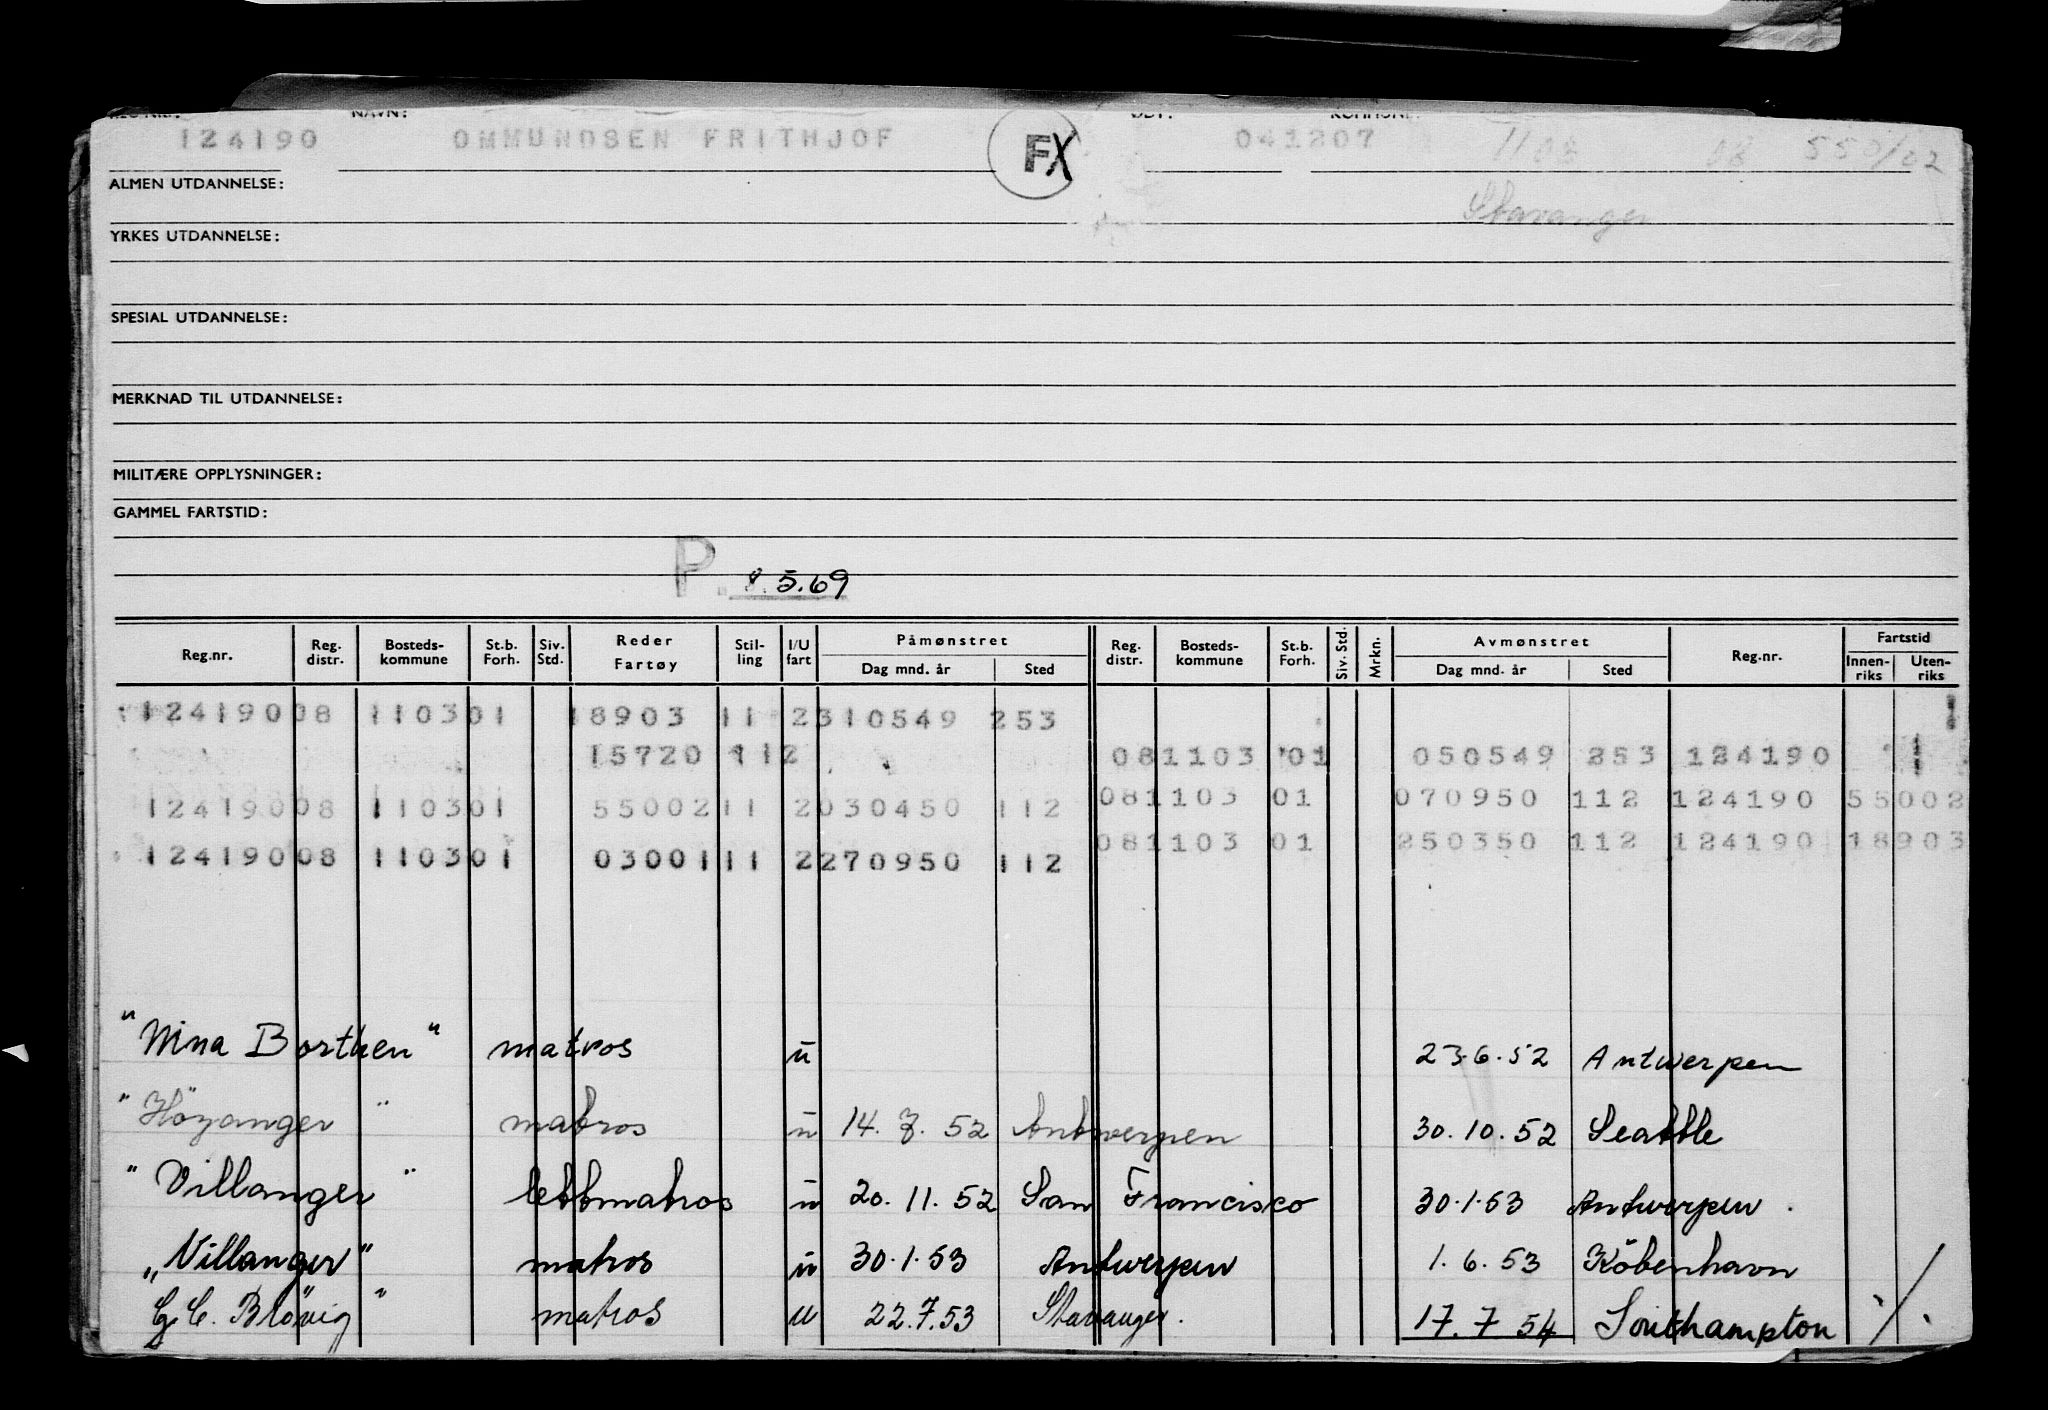 124190 OMMUNDSEN FRITHJOF FX 041207 1103 08 550/02
ALMEN UTDANNELSE: Stavanger
YRKES UTDANNELSE:
SPESIAL UTDANNELSE:
MERKNAD TIL UTDANNELSE:
MILITÆRE OPPLYSNINGER:
GAMMEL FARTSTID:
P. 8.5.69
Reg.nr. Reg. distr. Bosteds-kommune St.b. Forh. Siv. Std. Reder Fartøy Stil-ling I/U fart Påmønstret Dag mnd. år Sted Reg. distr. Bosteds-kommune St.b. Forh. Siv. Std. Mrkn. Avmønstret Dag mnd. år Sted Reg.nr. Fartstid Innen-riks Uten-riks
124190 08 1103 01 18903 11 2 310549 253
15720 11 2 08 1103 01 050549 253 124190
124190 08 1103 01 55002 11 2 030450 112 08 1103 01 070950 112 124190 55002
08 1103 01 250350 112 124190 18903
124190 08 1103 01 03001 11 2 270950 112
"Nina Borthen" matros u 23.6.52 Antwerpen
"Höyanger" matros u 14.7.52 Antwerpen 30.10.52 Seattle
"Villanger" lettmatros u 20.11.52 San Francisco 30.1.53 Antwerpen.
"Villanger" matros u 30.1.53 Antwerpen 1.6.53 Köbenhavn
G.C. Brövig" matros u 22.7.53 Stavanger. 17.7 54 Southampton ./.